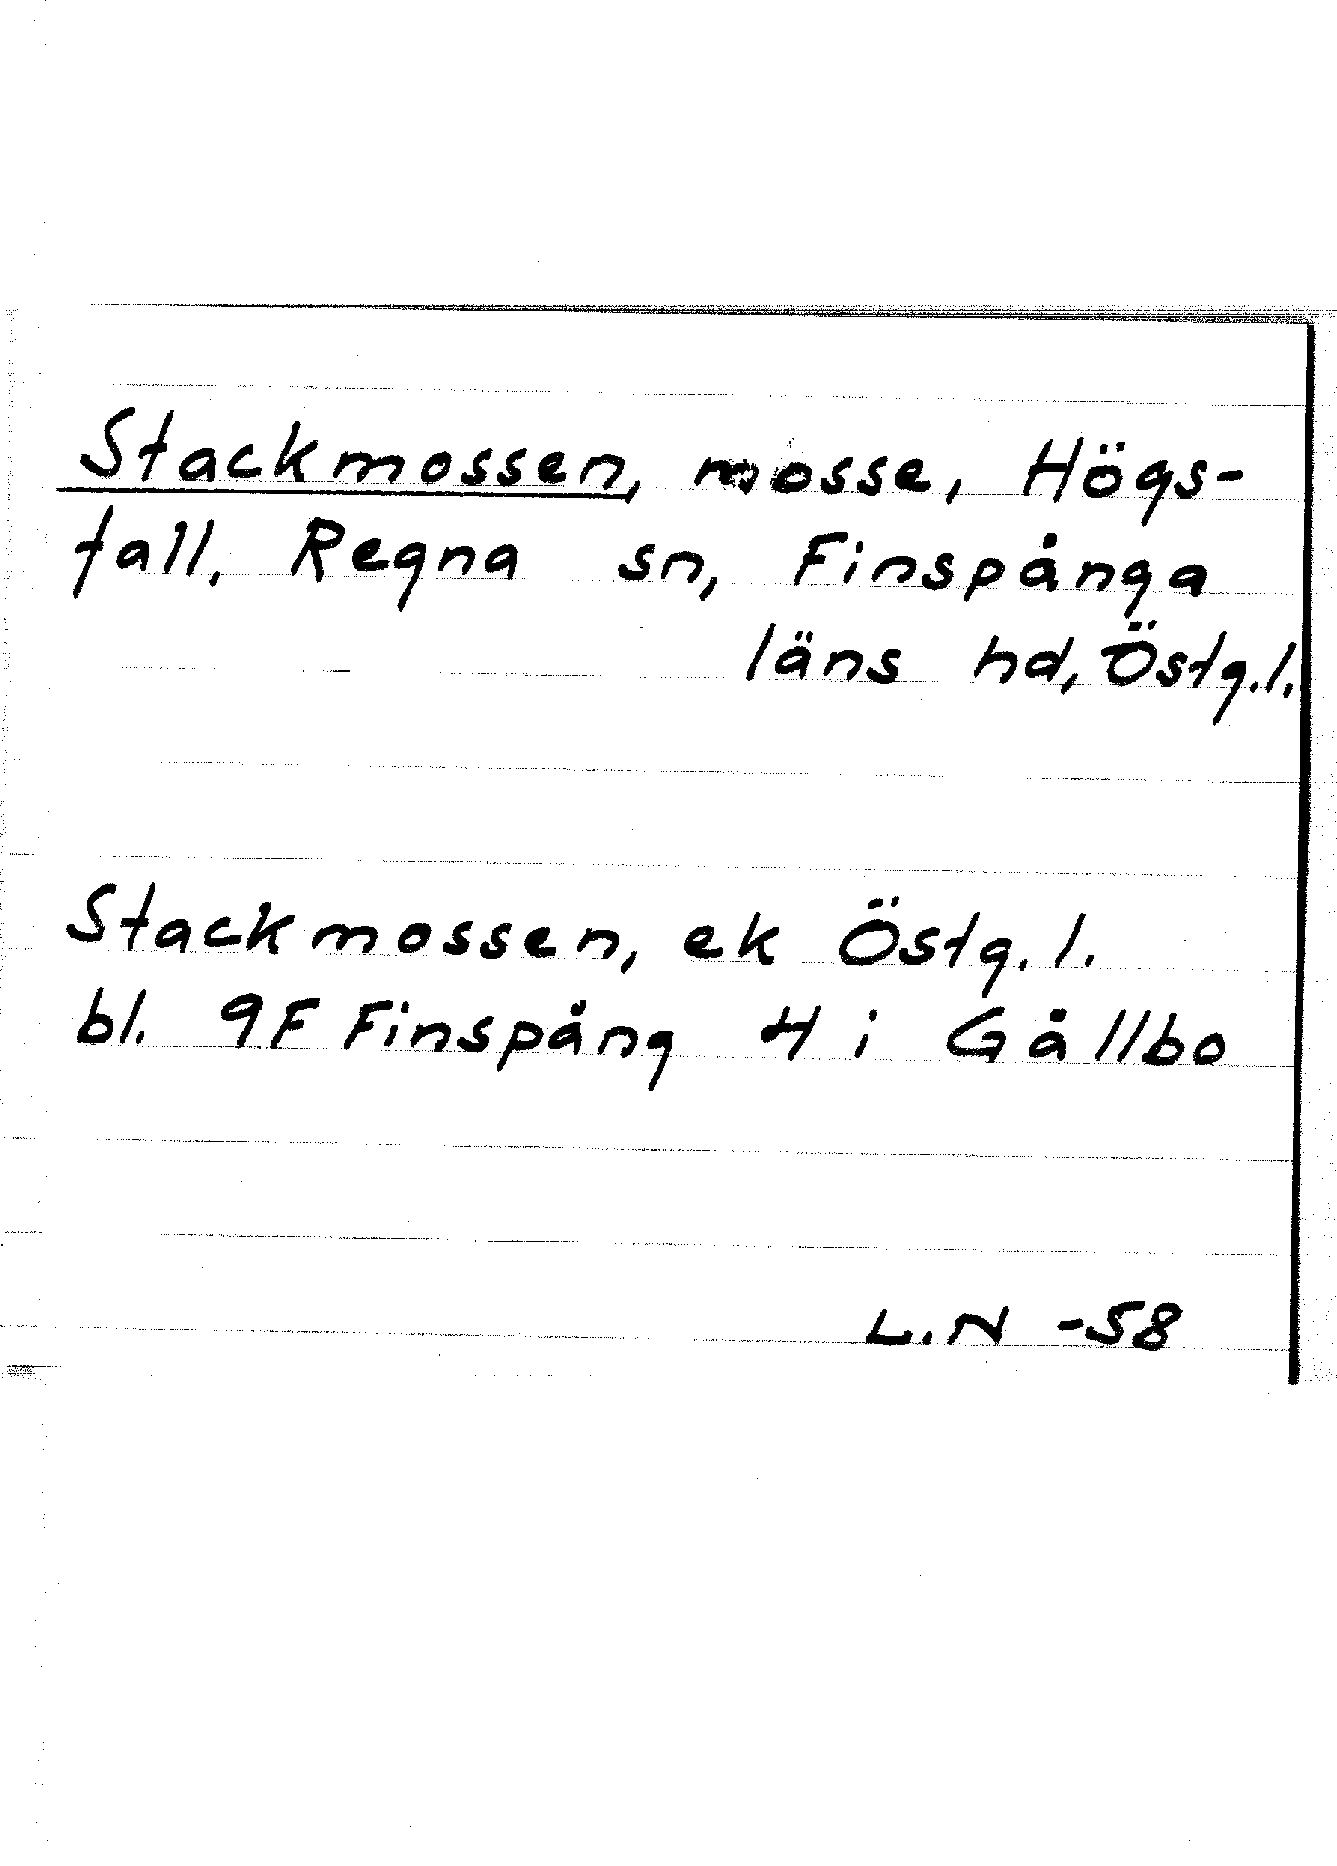 Stackmossen, mosse, Högs-
fall, Regna sn, Finspånga
läns hd, Östg.l.
Stackmossen, ek Östg.l.
bl. 9F Finspång 4 i Gållbo
L.N -58